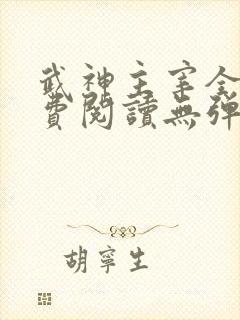 武神主宰全
費閱讀無彈
胡寧生